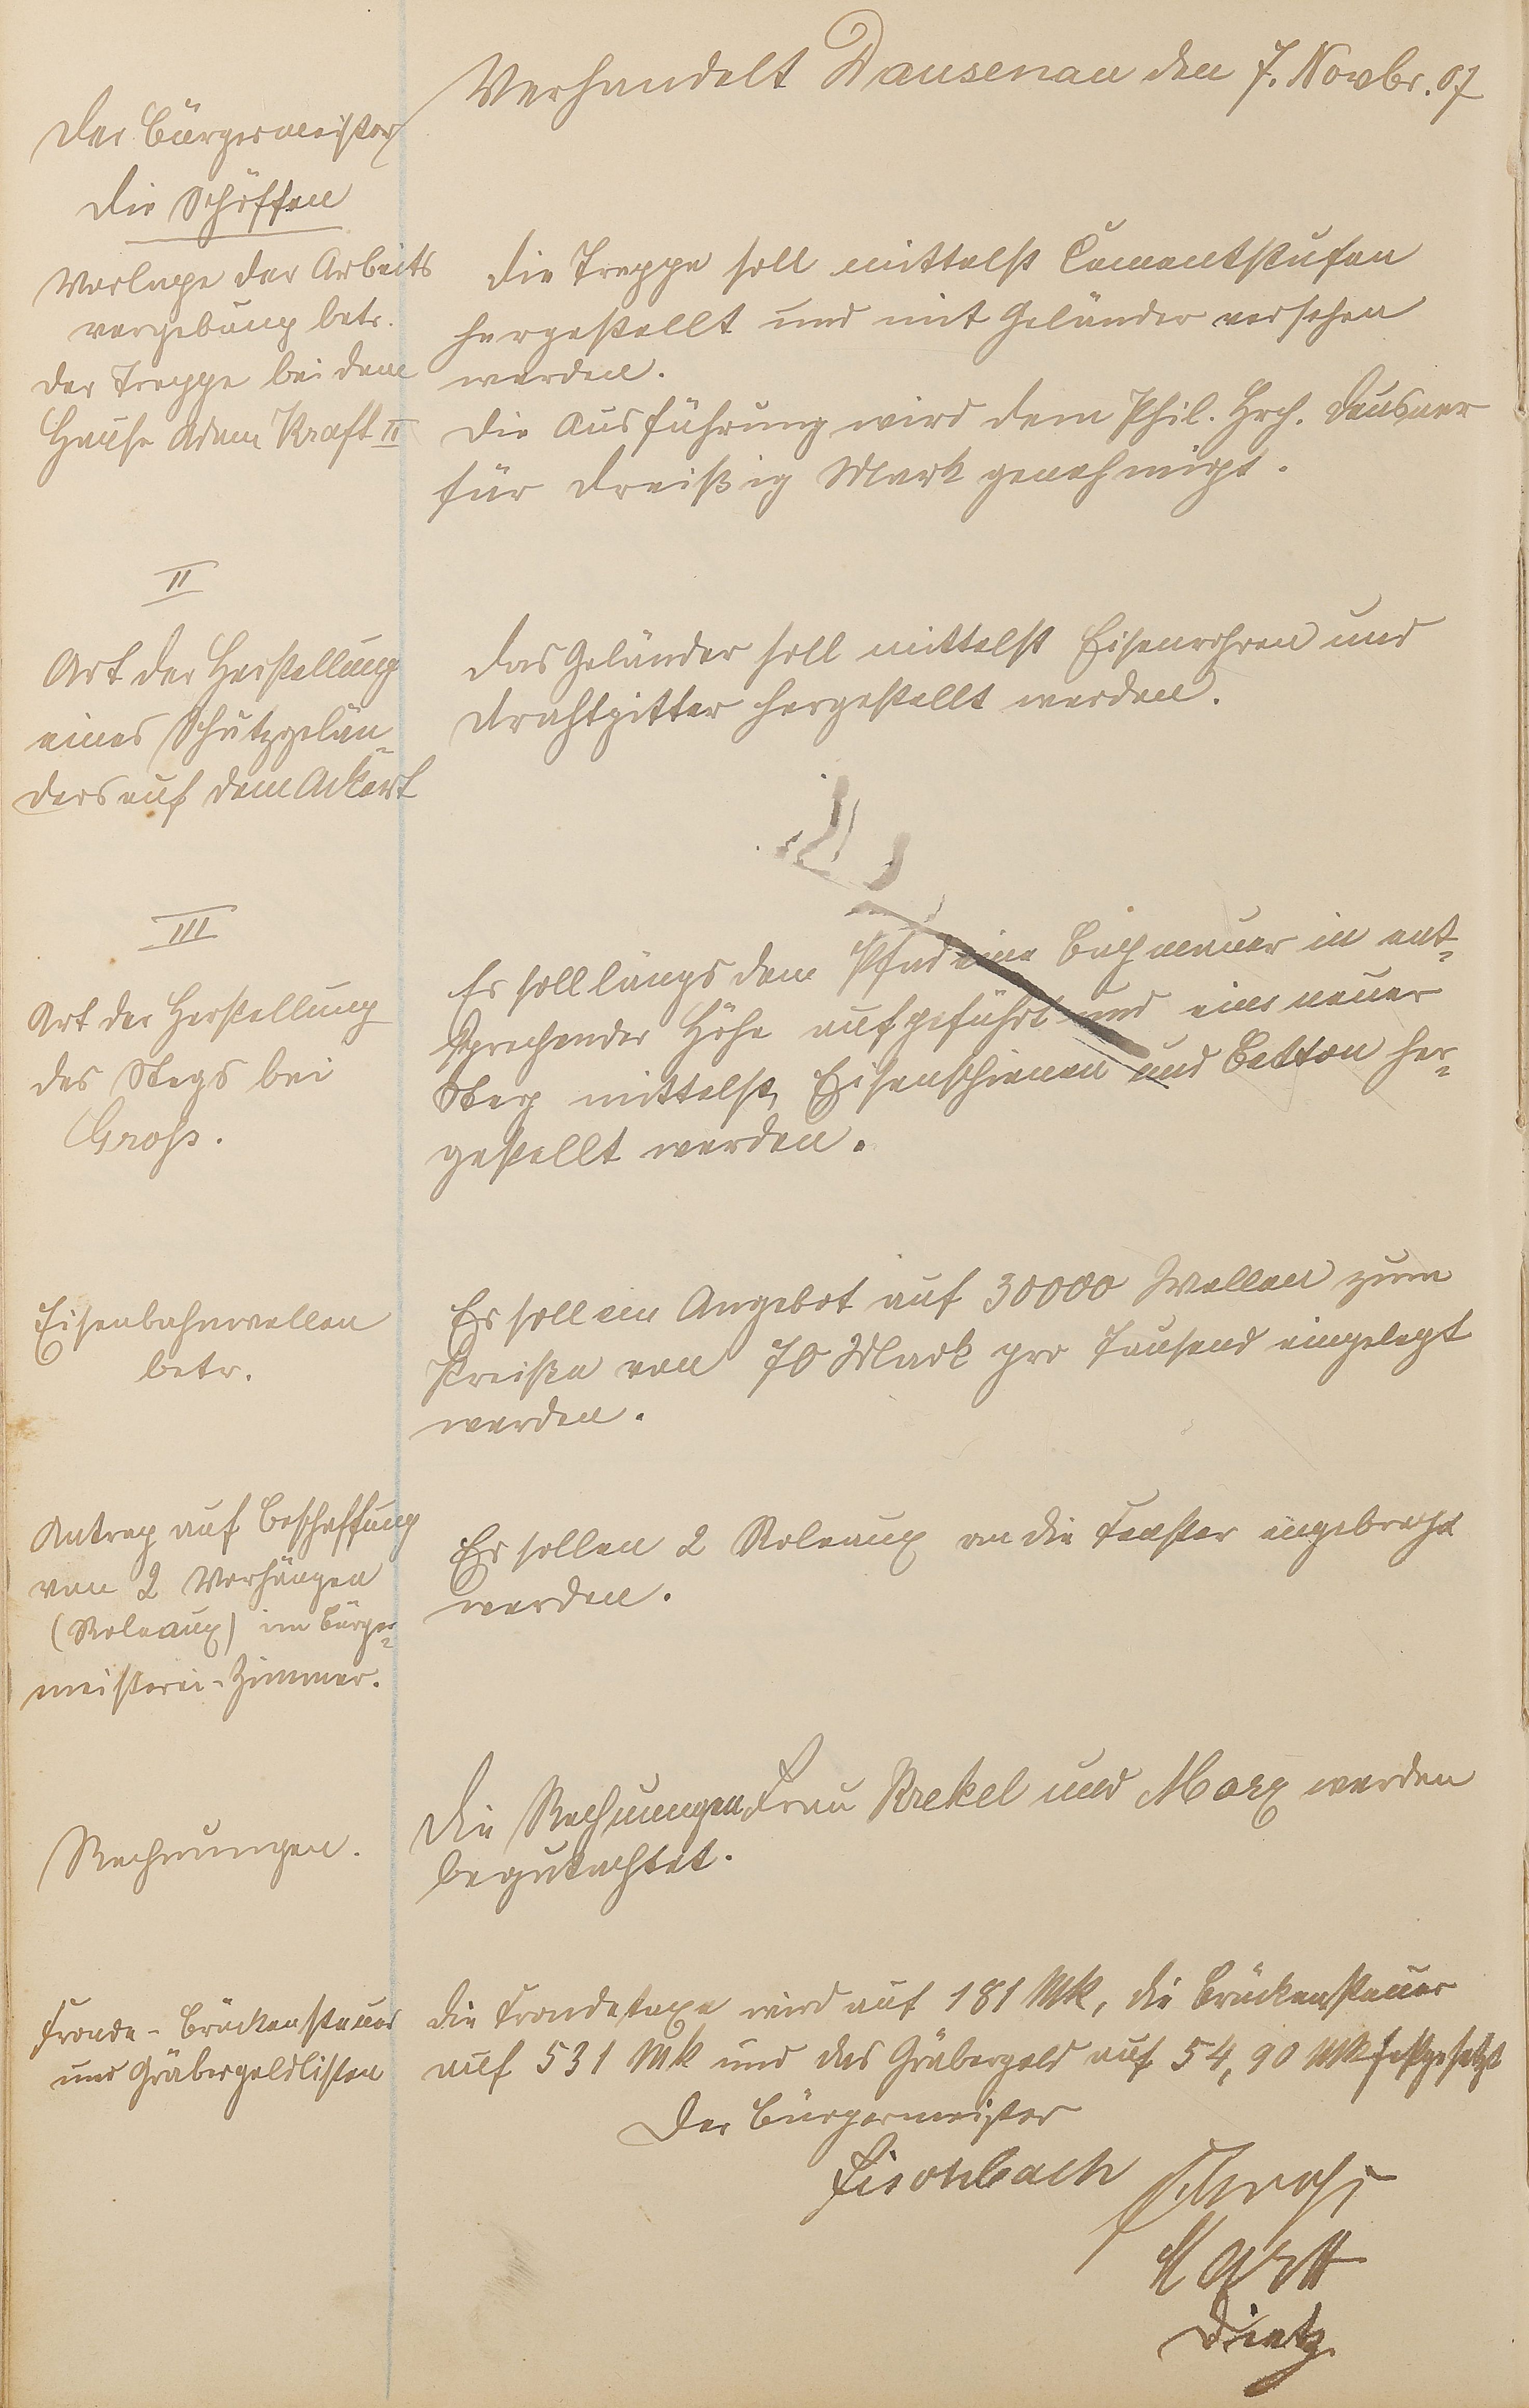 Verhandelt Dausenau den 7. Novbr. 07
Der Bürgermeister
die Schöffen
Vorlage der Arbeits
vergebung betr.
der Treppe bei dem
Hause Adam Kraft II
Die Treppe soll mittelst Cementstufen
hergestellt und mit Geländer versehen
werden.
Die Ausführung wird dem Phil. Hrch. Dausner
für dreißig Mark genehmigt.
II
Art der Herstellung
eines Schutzgelän-
ders auf dem
Das Geländer soll mittelst Eisenrohren und
Drahtgitter hergestellt werden.
III
Art der Herstellung
des Stegs bei
Groß.
Es soll längs dem Pfad eine Bachmauer in ent-
sprechender Höhe aufgeführt und ein neuer
Steg mittelst Eisenschienen und Betton her-
gestellt werden.
Eisenbahnwellen
betr.
Es soll ein Angebot auf 30000 Wellen zum
Preiße von 70 Mark pro Tausend eingelegt
werden.
Antrag auf Beschaffung
von 2 Vorhängen
(Roleaux) im Bürger-
meisterei-Zimmer.
Es sollen 2 Roleaux an die Fenster angebracht
werden.
Rechnungen.
Die Rechnungen Frau und Marx werden
begutachtet.
Fronde- Brückensteuer
und Gräbergeldlisten
Die Frondetaxe wird auf 181 Mk, die Brückensteuer
auf 531 Mk und das Gräbergeld auf 54,90 Mk festgesetzt
Der Bürgermeister
Fischbach
Groß
Dietz